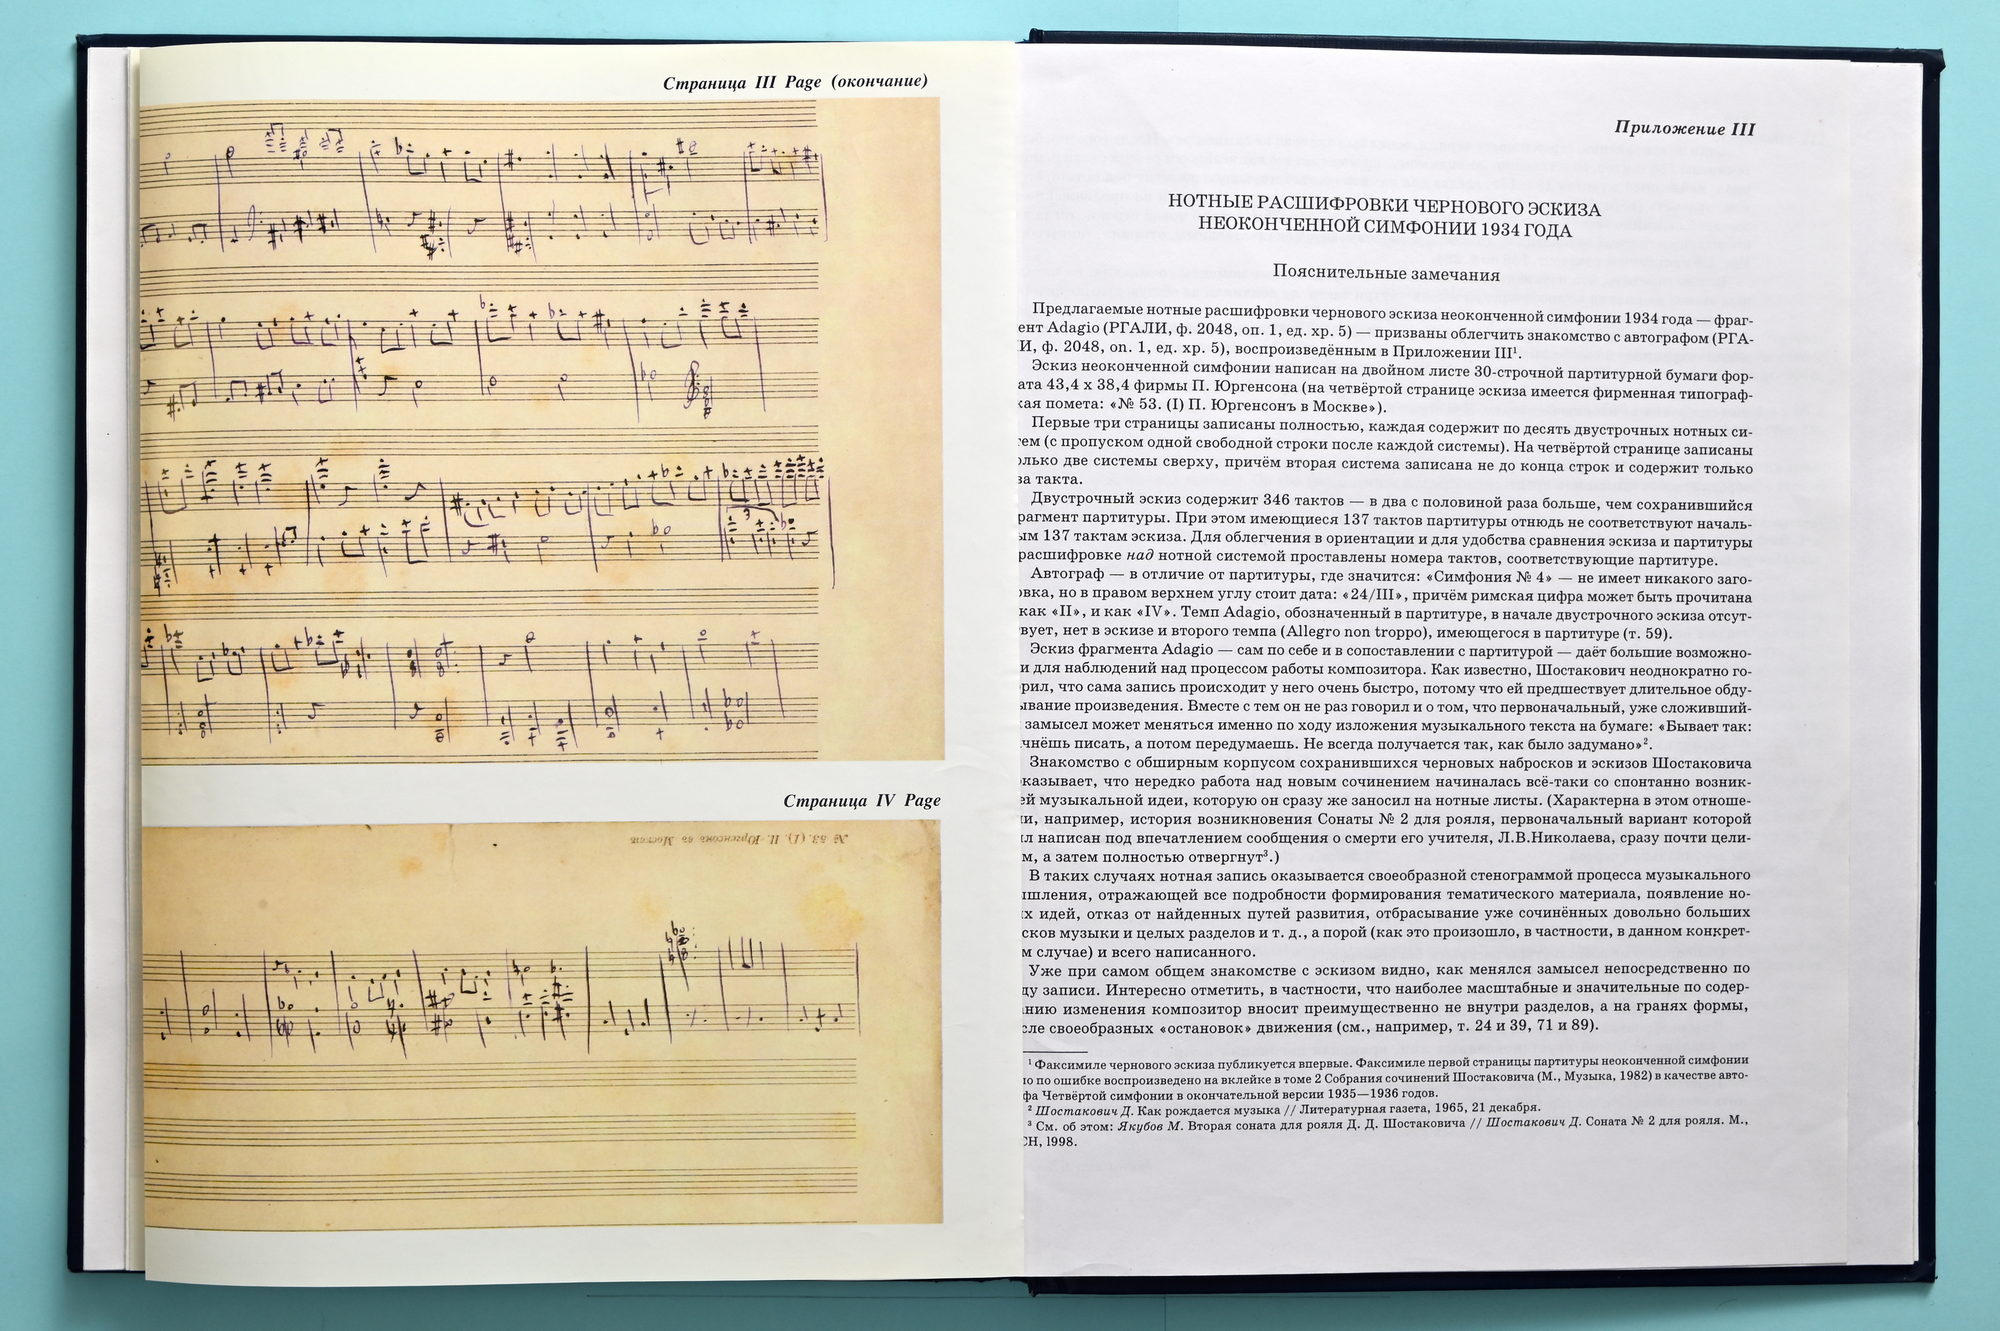 Страница III Page (окончание)
Страница IV Page
№ 53. (I). П. Юргенсонъ въ Москвѣ
Приложение III
НОТНЫЕ РАСШИФРОВКИ ЧЕРНОВОГО ЭСКИЗА
НЕОКОНЧЕННОЙ СИМФОНИИ 1934 ГОДА
Пояснительные замечания
Предлагаемые нотные расшифровки чернового эскиза неоконченной симфонии 1934 года — фраг-
ент Adagio (РГАЛИ, ф. 2048, оп. 1, ед. хр. 5) — призваны облегчить знакомство с автографом (РГА-
И, ф. 2048, оп. 1, ед. хр. 5), воспроизведённым в Приложении III¹.
Эскиз неоконченной симфонии написан на двойном листе 30-строчной партитурной бумаги фор-
ата 43,4 х 38,4 фирмы П. Юргенсона (на четвёртой странице эскиза имеется фирменная типограф-
кая помета: «№ 53. (I) П. Юргенсонъ в Москве»).
Первые три страницы записаны полностью, каждая содержит по десять двустрочных нотных си-
тем (с пропуском одной свободной строки после каждой системы). На четвёртой странице записаны
олько две системы сверху, причём вторая система записана не до конца строк и содержит только
ва такта.
Двустрочный эскиз содержит 346 тактов — в два с половиной раза больше, чем сохранившийся
рагмент партитуры. При этом имеющиеся 137 тактов партитуры отнюдь не соответствуют началь-
ым 137 тактам эскиза. Для облегчения в ориентации и для удобства сравнения эскиза и партитуры
расшифровке над нотной системой проставлены номера тактов, соответствующие партитуре.
Автограф — в отличие от партитуры, где значится: «Симфония № 4» — не имеет никакого заго-
овка, но в правом верхнем углу стоит дата: «24/III», причём римская цифра может быть прочитана
как «II», и как «IV». Темп Adagio, обозначенный в партитуре, в начале двустрочного эскиза отсут-
вует, нет в эскизе и второго темпа (Allegro non troppo), имеющегося в партитуре (т. 59).
Эскиз фрагмента Adagio — сам по себе и в сопоставлении с партитурой — даёт большие возможно-
и для наблюдений над процессом работы композитора. Как известно, Шостакович неоднократно го-
орил, что сама запись происходит у него очень быстро, потому что ей предшествует длительное обду-
ывание произведения. Вместе с тем он не раз говорил и о том, что первоначальный, уже сложивший-
замысел может меняться именно по ходу изложения музыкального текста на бумаге: «Бывает так:
чнёшь писать, а потом передумаешь. Не всегда получается так, как было задумано»².
Знакомство с обширным корпусом сохранившихся черновых набросков и эскизов Шостаковича
казывает, что нередко работа над новым сочинением начиналась всё-таки со спонтанно возник-
ей музыкальной идеи, которую он сразу же заносил на нотные листы. (Характерна в этом отноше-
и, например, история возникновения Сонаты № 2 для рояля, первоначальный вариант которой
л написан под впечатлением сообщения о смерти его учителя, Л.В.Николаева, сразу почти цели-
м, а затем полностью отвергнут³.)
В таких случаях нотная запись оказывается своеобразной стенограммой процесса музыкального
ышления, отражающей все подробности формирования тематического материала, появление но-
х идей, отказ от найденных путей развития, отбрасывание уже сочинённых довольно больших
сков музыки и целых разделов и т. д., а порой (как это произошло, в частности, в данном конкрет-
м случае) и всего написанного.
Уже при самом общем знакомстве с эскизом видно, как менялся замысел непосредственно по
ду записи. Интересно отметить, в частности, что наиболее масштабные и значительные по содер-
анию изменения композитор вносит преимущественно не внутри разделов, а на гранях формы,
сле своеобразных «остановок» движения (см., например, т. 24 и 39, 71 и 89).
¹ Факсимиле чернового эскиза публикуется впервые. Факсимиле первой страницы партитуры неоконченной симфонии
ло по ошибке воспроизведено на вклейке в томе 2 Собрания сочинений Шостаковича (М., Музыка, 1982) в качестве авто-
фа Четвёртой симфонии в окончательной версии 1935—1936 годов.
² Шостакович Д. Как рождается музыка // Литературная газета, 1965, 21 декабря.
³ См. об этом: Якубов М. Вторая соната для рояля Д. Д. Шостаковича // Шостакович Д. Соната № 2 для рояля. М.,
СН, 1998.